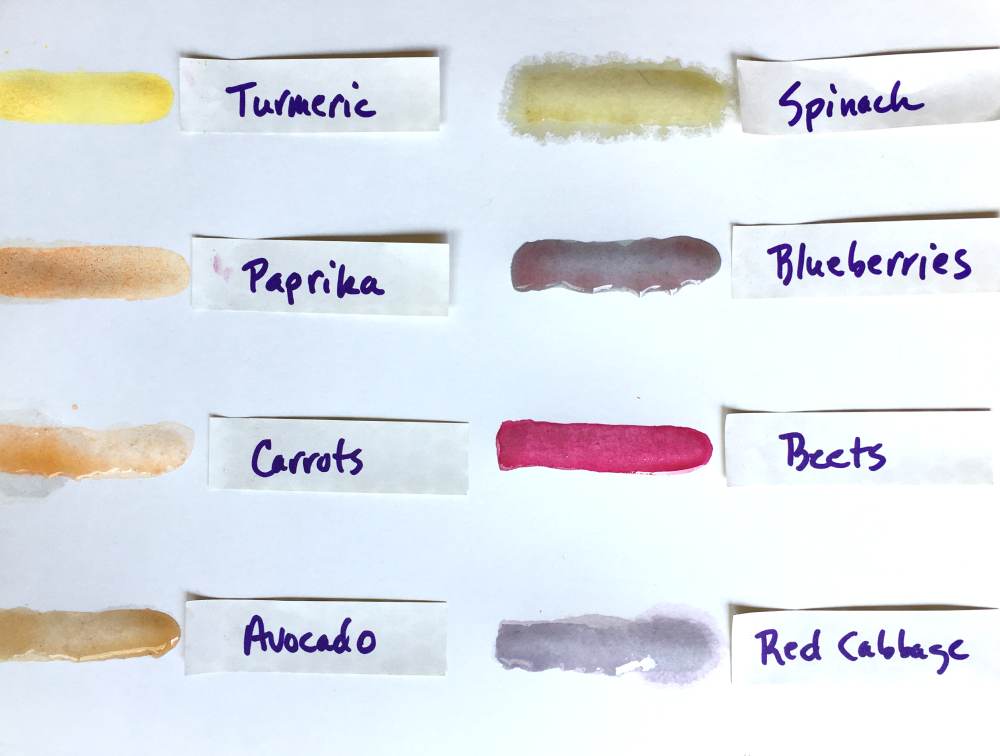 Turmeric
Spinach
Paprika
Blueberries
Carrots
Beets
Avocado
Red Cabbage